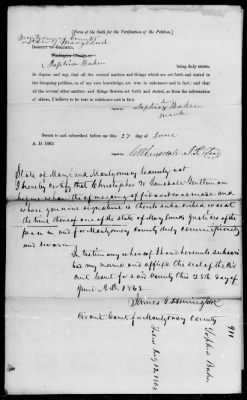 [Form of the Oath for the Verification of the Petition.]
Montgomery County
State of Maryland
DISTRICT OF COLUMBIA,
Washington County, ss.
I, Sophia Baker being duly sworn,
do depose and say, that all the several matters and things which are set forth and stated in
the foregoing petition, as of my own knowledge, are true in substance and in fact; and that
all the several other matters and things therein set forth and stated, as from the information
of others, I believe to be true in substance and in fact.
her
Sophia X Baker
mark
Sworn to and subscribed before me this 27 day of June
A. D. 1862.
J. P.
State of Maryland Montgomery County set
I hereby certify that Christopher
before whom the aforegoing affidavit was made and
whose genuine signature is thereto subscribed was at
the time thereof one of the state of Maryland's Justices of the
peace in and for Montgomery County duly commissioned
and sworn
In testimony whereof I have hereunto subscri
bed my name and affixed the seal of the Cir
cuit Court for said County this 28th day of
June A.D. 1862
James G. Henning
Circuit Court for Montgomery County
Filed July 12, 1862
Sophia Baker
911